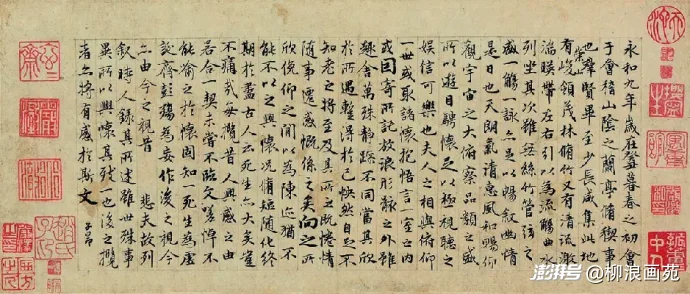 永和九年歲在癸丑暮春之初會
于會稽山陰之蘭亭脩稧事
也羣賢畢至少長咸集此地
有崇山峻領茂林脩竹又有清流激
湍暎帶左右引以為流觴曲水
列坐其次雖無絲竹管弦之
盛一觴一詠亦足以暢敘幽情
是日也天朗氣清惠風和暢仰
觀宇宙之大俯察品類之盛
所以遊目騁懷足以極視聽之
娛信可樂也夫人之相與俯仰
一世或取諸懷抱悟言一室之內
或因寄所託放浪形骸之外雖
趣舍萬殊靜躁不同當其欣
於所遇蹔得於己怏然自足不
知老之將至及其所之既惓情
隨事遷感慨係之矣向之所
欣俛仰之間以為陳迹猶不
能不以之興懷況脩短隨化終
期於盡古人云死生亦大矣豈
不痛哉每攬昔人興感之由
若合一契未嘗不臨文嗟悼不
能喻之於懷固知一死生為虛
誕齊彭殤為妄作後之視今
亦由今之視昔 悲夫故列
敘時人錄其所述雖世殊事
異所以興懷其致一也後之攬
者亦將有感於斯文
子昂
澎湃号@柳浪画苑